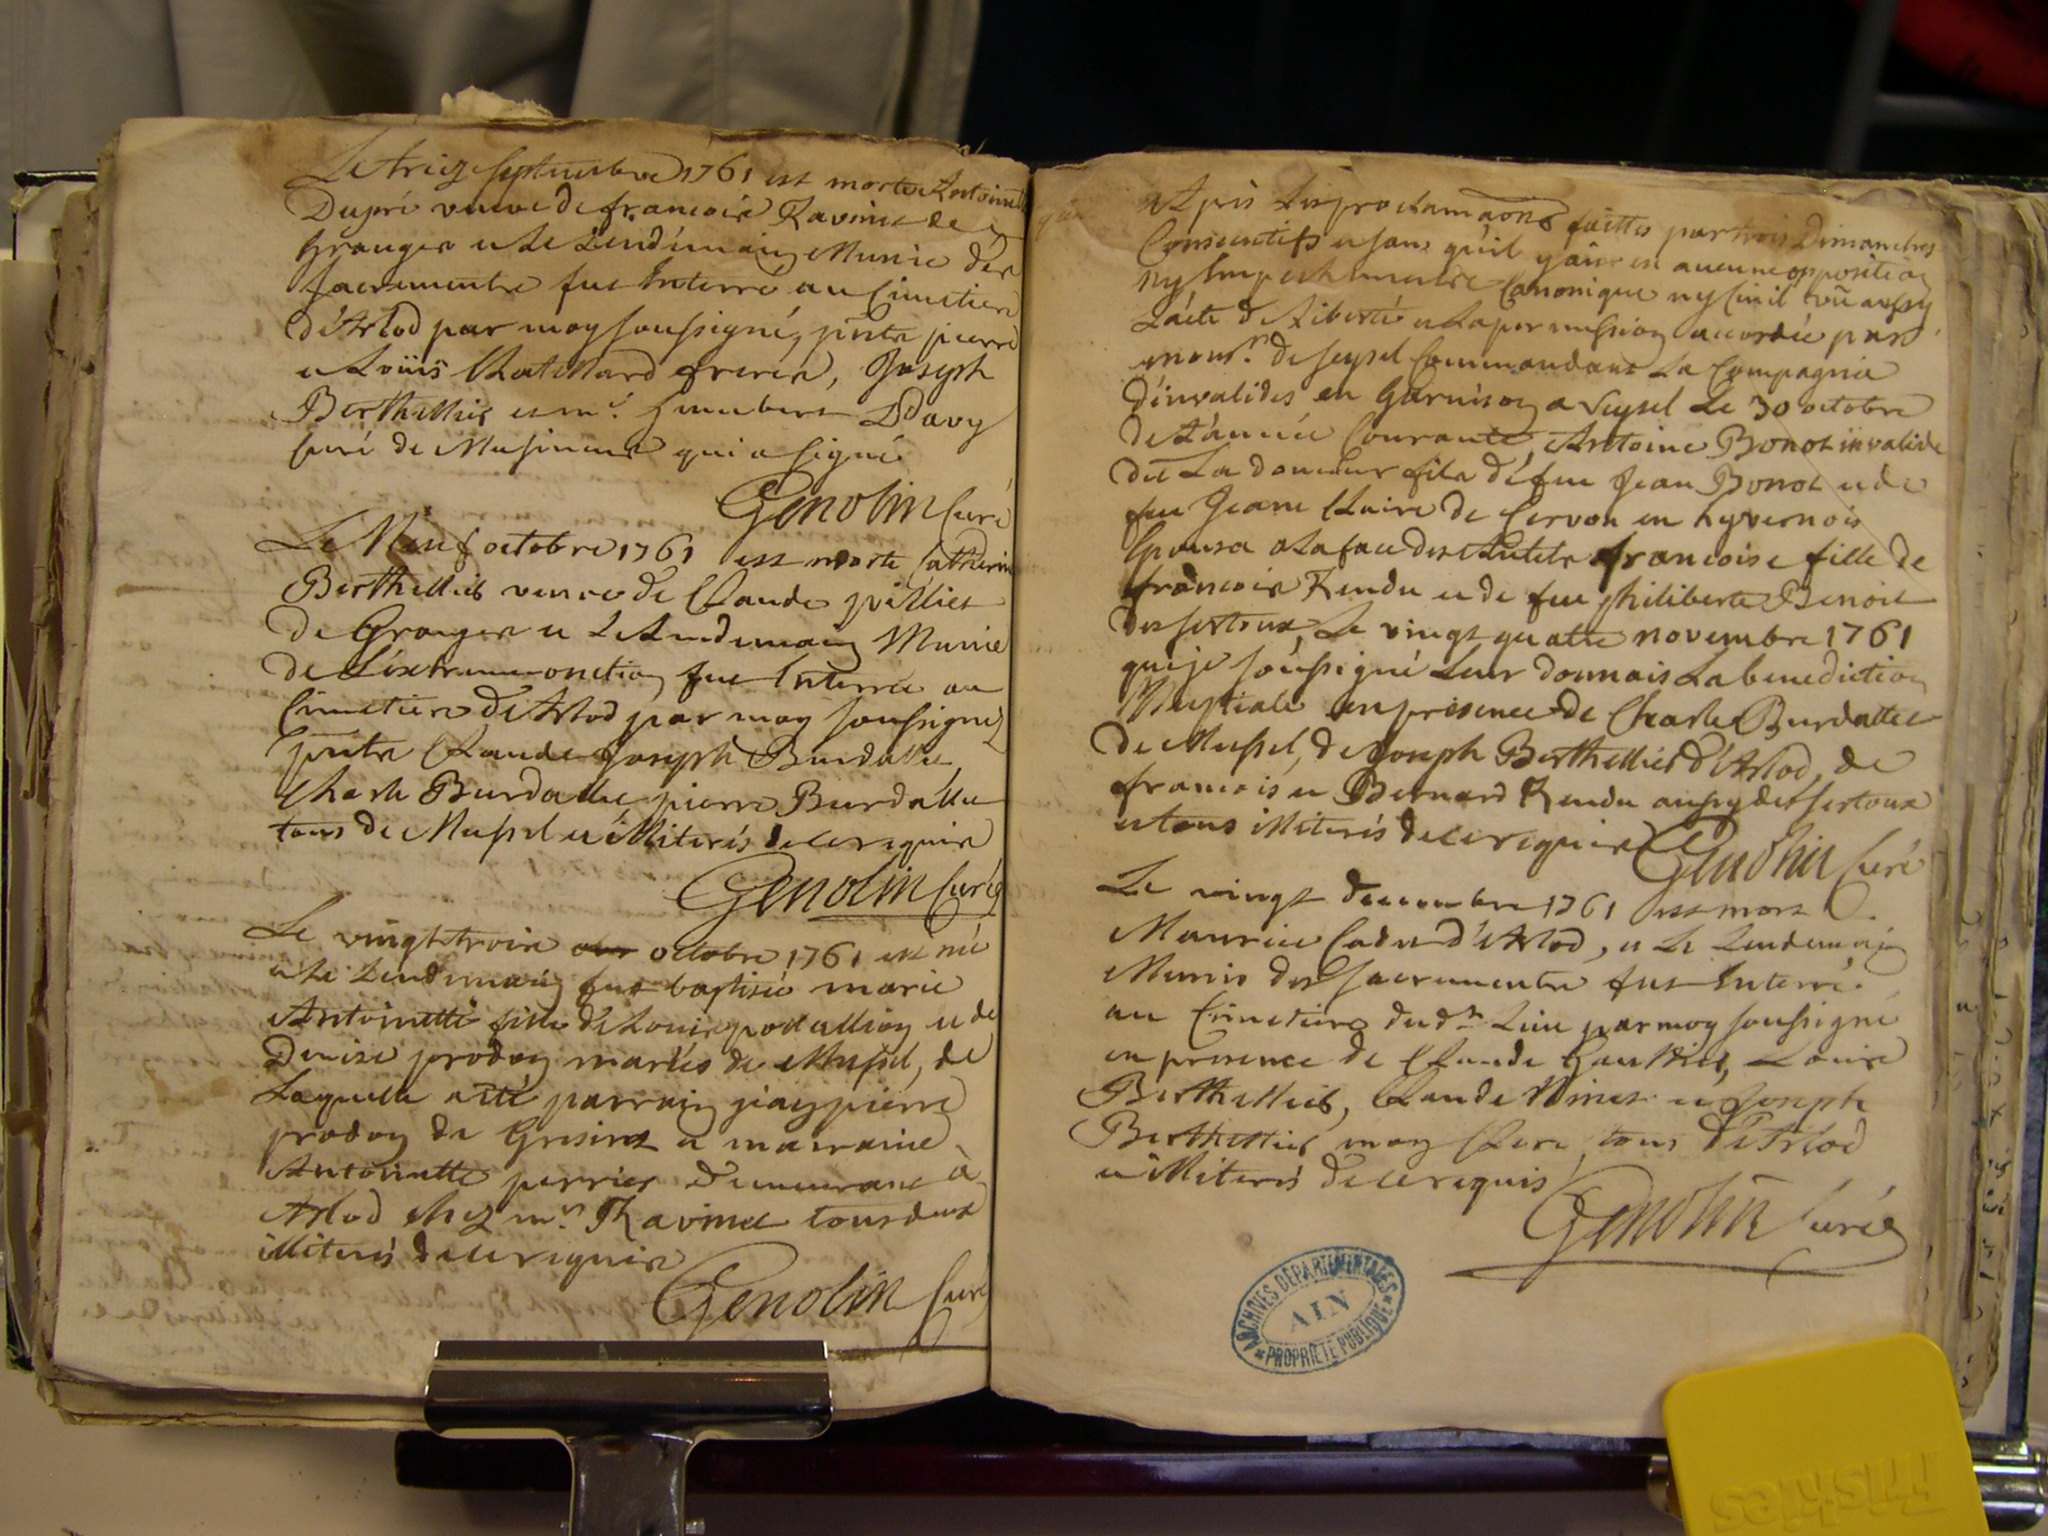 Le treiz septembre 1761 est morte Antoinette
Dupré veuve de francois Ravinet de
Granges et le Lendemain Munie des
Sacrements fut Enterré au Cimetiere
d'Arlod par moy soussigné, pñts pierre
et Loüis Chatillard freres, Joseph
Berthellier et mr. humbert Davy
Curé de Musinens qui a signé
Genolin Curé
Le Neuf octobre 1761 est morte Catherine
Berthellier veuve de Claude
de Granges et le Lendemain Munie
de L'extremeonction fut Enterrée au
Cimetiere de Arlod par moy soussigné
pñts Claude Joseph Burdallet,
Charle Burdallet pierre Burdallet
tous de Mussel et illiterés de ce requis
Genolin Curé
Le vingt trois octobre 1761 est née
et le Lendemain fut baptisée marie
Antoinette fille de Louis et de
Denise prodon mariés de Mussel, de
Laquelle a été parrain pierre
prodon de et marraine
Antoinette perrier demeurant à
Arlod chez mr. Ravinet tous deux
illiterés de ce requis
Genolin Curé
Apres Les proclamaõns faittes par trois Dimanches
Consecutifs et sans qu'il y aie eu aucune opposition
ny Empechements Canonique ny Civil vü aussy
L'acte de Liberté et La permission accordée par
monsr. de seysel Commandant La Compagnie
d'invalides en Garnison a seysel Le 30 octobre
de L'année Courante, Antoine Bonot invalide
dit La douceur fils de feu Jean Bonot et de
feu Jeane Claire de Cervon en Nyvernois
Epousa a La face des Autels francoise fille de
francois Rendu et de feu philiberte Benoit
des sertoux, Le vingt quatre novembre 1761
que je soussigné Leur donnais La benediction
Nuptiale en presence de Charle Burdallet
de Mussel, de Joseph Berthellier d'Arlod, de
francois et Bernard Rendu aussy des sertoux
et tous illiterés de ce requis Genolin Curé
Le vingt decembre 1761 est mort
Maurice Cadet d'Arlod, et Le Lendemain
Munis des Sacrements fut Enterré
au Cimetiere dudt. Lieu par moy soussigné
en presence de Claude Gauthier, Louis
Berthellier, Claude et Joseph
Berthellier mon Clerc, tous d'Arlod
et illiterés de ce requis
Genolin Curé
ARCHIVES DÉPARTEMENTALES
AIN
PROPRIÉTÉ PUBLIQUE
Friskies